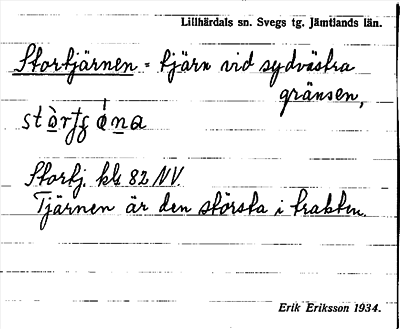 Lillhärdals sn. Svegs tg. Jämtlands län.
Stortjärnen = tjärn vid sydvästra
gränsen,
Stortj. kbl 82 NV.
Tjärnen är den största i trakten.
Erik Eriksson 1934.